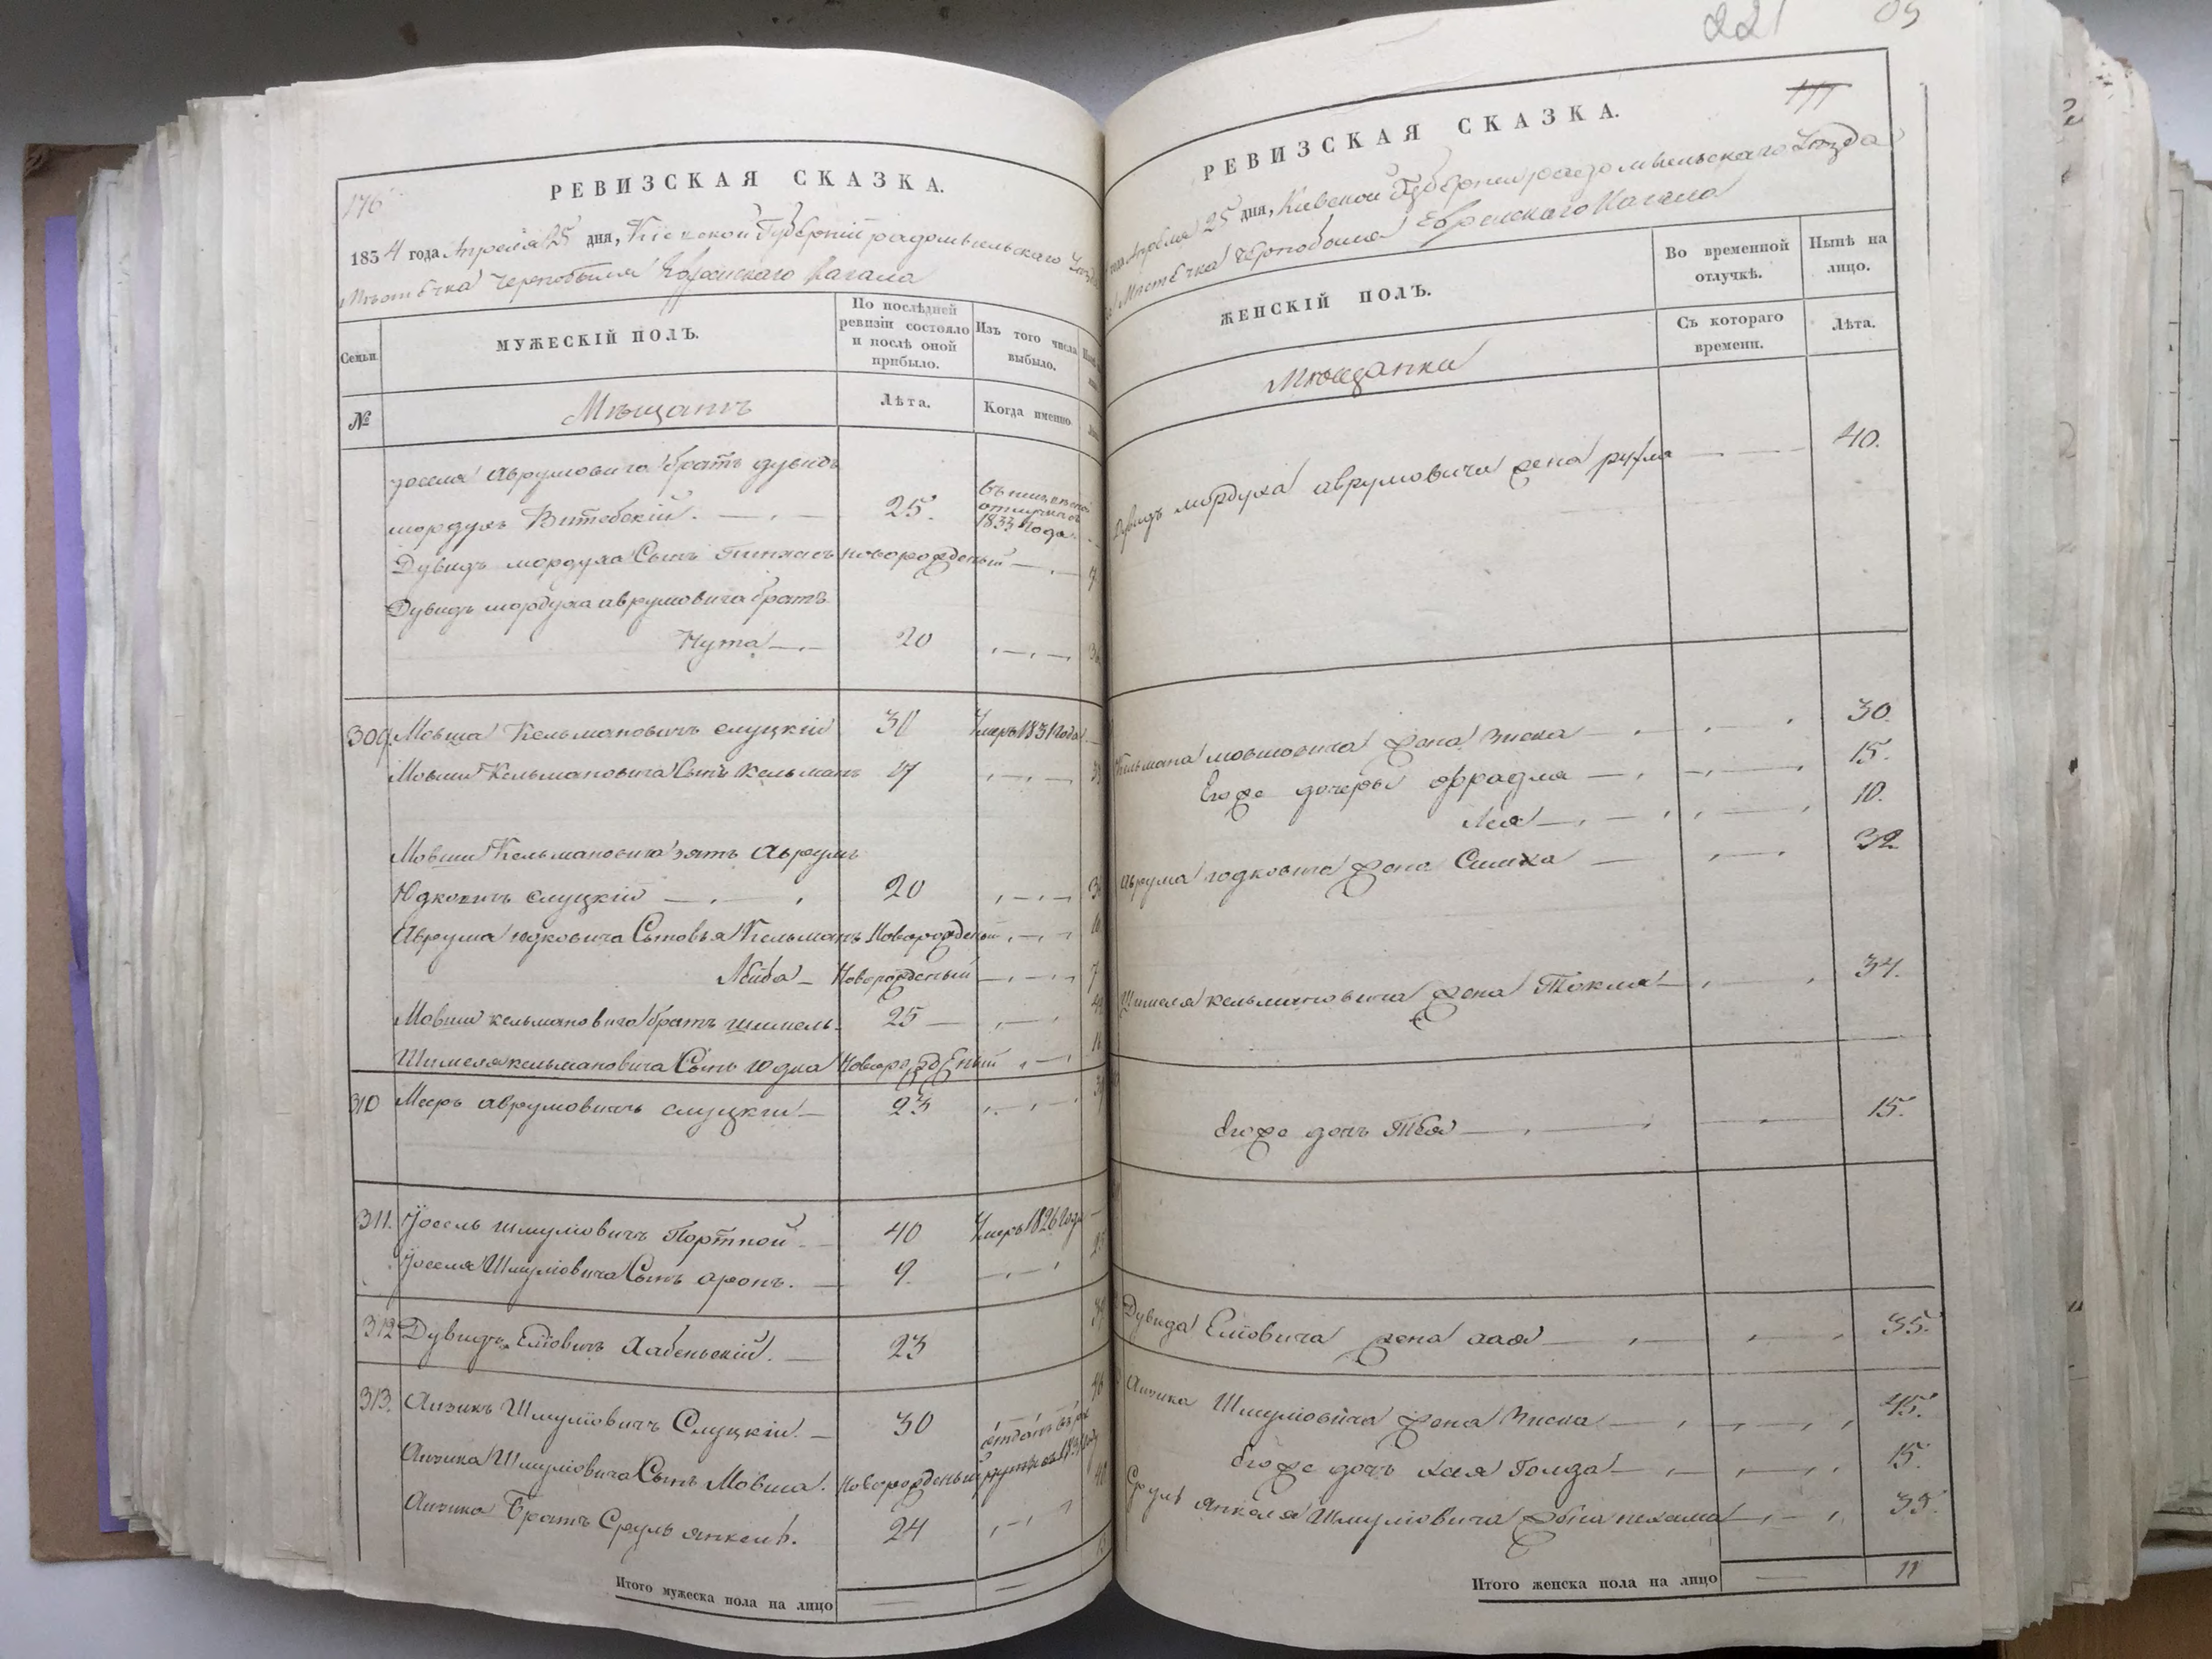 176
РЕВИЗСКАЯ СКАЗКА.
1834 года Апреля 25 дня, Кіевской Губерніи радомысльскаго
Мѣстѣчка Чернобыля Еврейскаго Кагала
Семьи
МУЖЕСКІЙ ПОЛЪ.
По послѣдней ревизіи состояло и послѣ оной прибыло.
Изъ того числа выбыло.
№
Мѣщанъ
Лѣта.
Когда именно
Іоселя Аврумовича братъ дувидъ
мордухъ Витебскій. 25.
1833 года
Дувидъ мордуха Сынъ Пинхасъ новорожденый
Дувидъ мордуха аврумовича братъ
Нута 20
309. Мовша Кельмановичъ слуцкій 30 Умеръ 1831 года
Мовши Кельмановича Сынъ Кельманъ 17
Мовши Кельмановича зять Аврумъ
Юдковичъ слуцкій 20
Аврума юдковича Сыновья Кельманъ Новорожденый
Лейба Новорожденый
Мовши кельмановича братъ шимель 25
Шимеля кельмановича Сынъ юдка Новорожденый
310 Мееръ аврумовичъ слуцкій 23
311. Іосель шмуліовичъ Портной 40 Умеръ 1826 года
Іоселя Шмуліовича Сынъ аронъ. 9.
312 Дувидъ Еліовичъ Хабеньскій. 23
313. Аизикъ Шмуліовичъ Слуцкій. 30
Аизика Шмуліовича Сынъ Мовша. Новорожденый
Аизика Братъ Сруль янкель. 24
Итого мужеска пола на лицо
221
РЕВИЗСКАЯ СКАЗКА.
года Апреля 25 дня, Кіевской Губерніи радомысльскаго Уѣзда
Мѣстечка Чернобыля Еврейскаго Кагала
ЖЕНСКІЙ ПОЛЪ.
Во временной отлучкѣ.
Нынѣ на лицо.
Съ котораго времени.
Лѣта.
Мѣщанки
Дувидъ мордуха аврумовича жена рухля 40.
Кельмана мовшовича жена Зиска 30.
Его же дочери фрадля 15.
Лея 10.
Аврума юдковича жена Симха 32
Шимеля кельмановича жена Токля 34.
Его же дочь 15.
Дувида Еліовича жена хая 35.
Аизика Шмуліовича жена Зиска 45.
Его же дочь хая Голда 15.
Сруль янкеля Шмуліовича жена нехама 35.
Итого женска пола на лицо 11